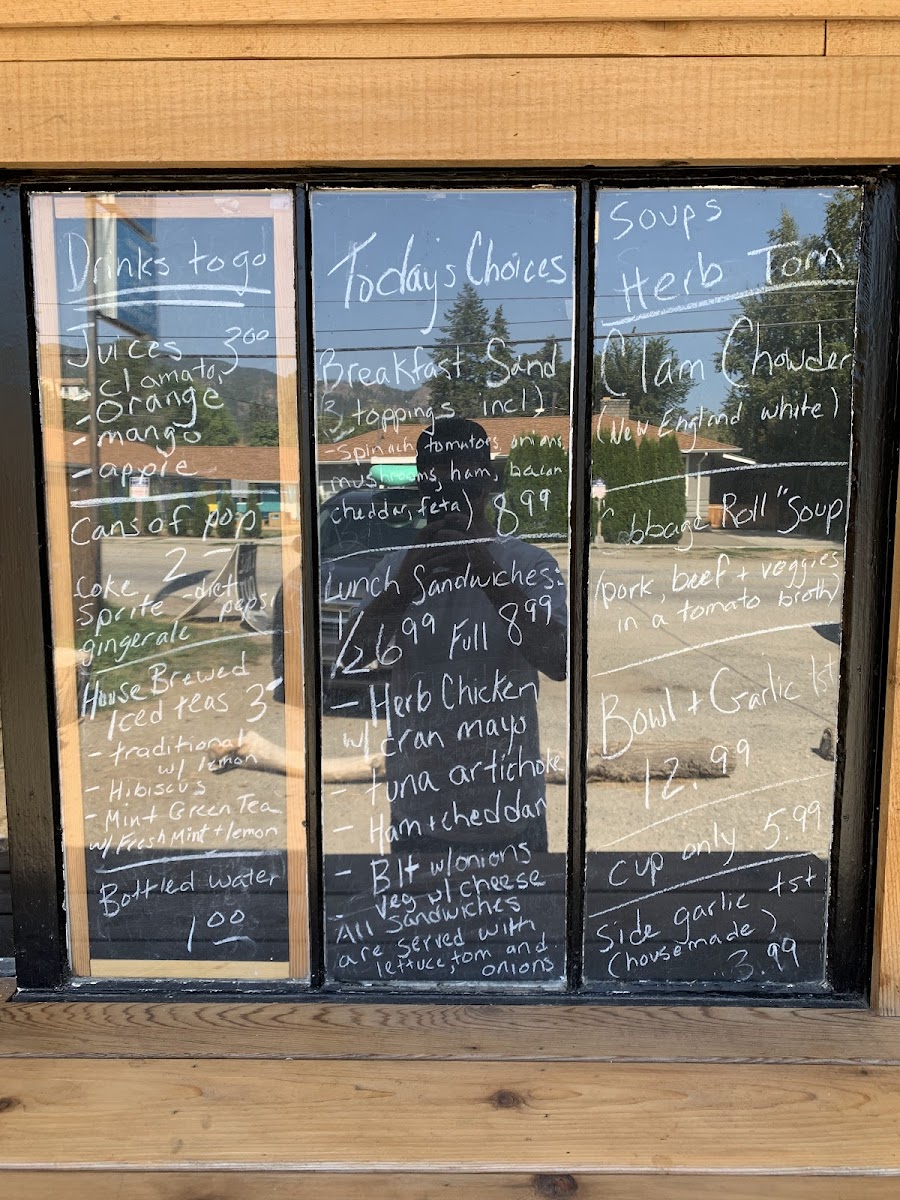 Drinks to go
Juices 3.00
- Clamato,
- Orange
- mango
- apple
Cans of pop
2 -
Coke - diet
Sprite pepsi
gingerale
House Brewed
Iced teas 3-
- traditional
w/ lemon
- Hibiscus
- Mint Green Tea
w/ Fresh Mint + lemon
Bottled water
1.00
Today's Choices
Breakfast Sand
(3 toppings incl)
- spinach, tomatoes, onions,
mushrooms, ham, bacon
cheddar, feta) 8.99
Lunch Sandwiches:
1/2 6.99 Full 8.99
- Herb Chicken
w/ cran mayo
- tuna artichoke
- Ham + cheddar
- Blt w/onions
- Veg w/ cheese
All sandwiches
are served with
lettuce, tom and
onions
Soups
Herb Tom
Clam Chowder
(New England white)
"Cabbage Roll" Soup
(pork, beef + veggies
in a tomato broth)
Bowl + Garlic tst
12.99
cup only 5.99
Side garlic tst
(housemade)
3.99